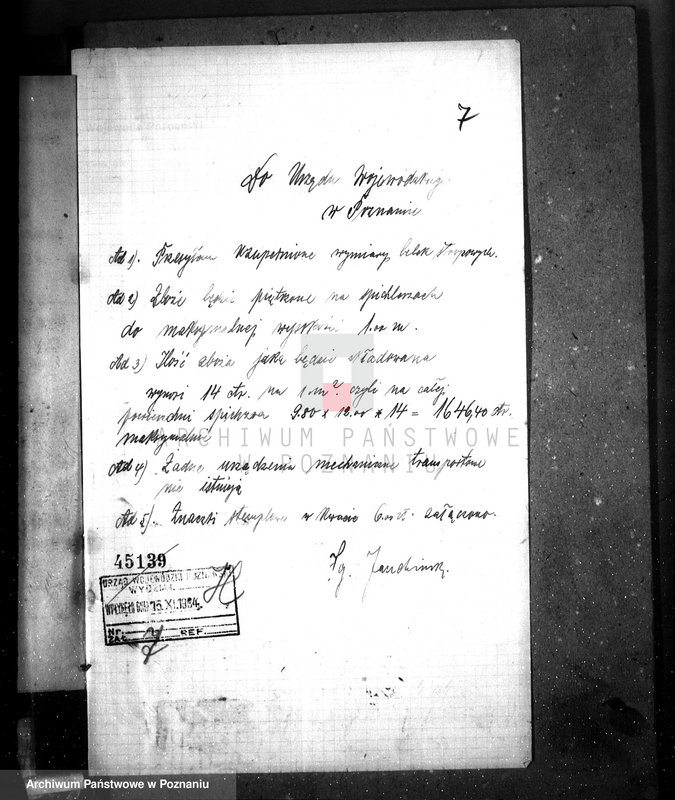 7
Do Urzędu Wojewódzkiego
w Poznaniu
Ad 1). Przesyłam uzupełnione wymiary belek stropowych.
Ad 2) Zboże będzie piętrzone na spichlerzach
do maksymalnej wysokości 1.00 m.
Ad 3) Ilość zboża jaka będzie składowana
wynosi 14 ctr. na 1 m². czyli na całej
powierzchni spichrza 9.80 × 12.00 × 14 = 1646,40 ctr.
maksymalnie
ARCHIWUM PAŃSTWOWE
W POZNANIU
Ad 4) Żadne urządzenia mechaniczne transportowe
nie istnieją
Ad 5). Znaczki stemplowe w kwocie 6.- zł. załączono.
45139
URZĄD WOJEWÓDZKI POZNAŃSKI
WYDZIAŁ
WPŁYNĘŁO DNIA 15.XI.1934
NR.
ZAŁ. 2 REF.
Archiwum Państwowe w Poznaniu